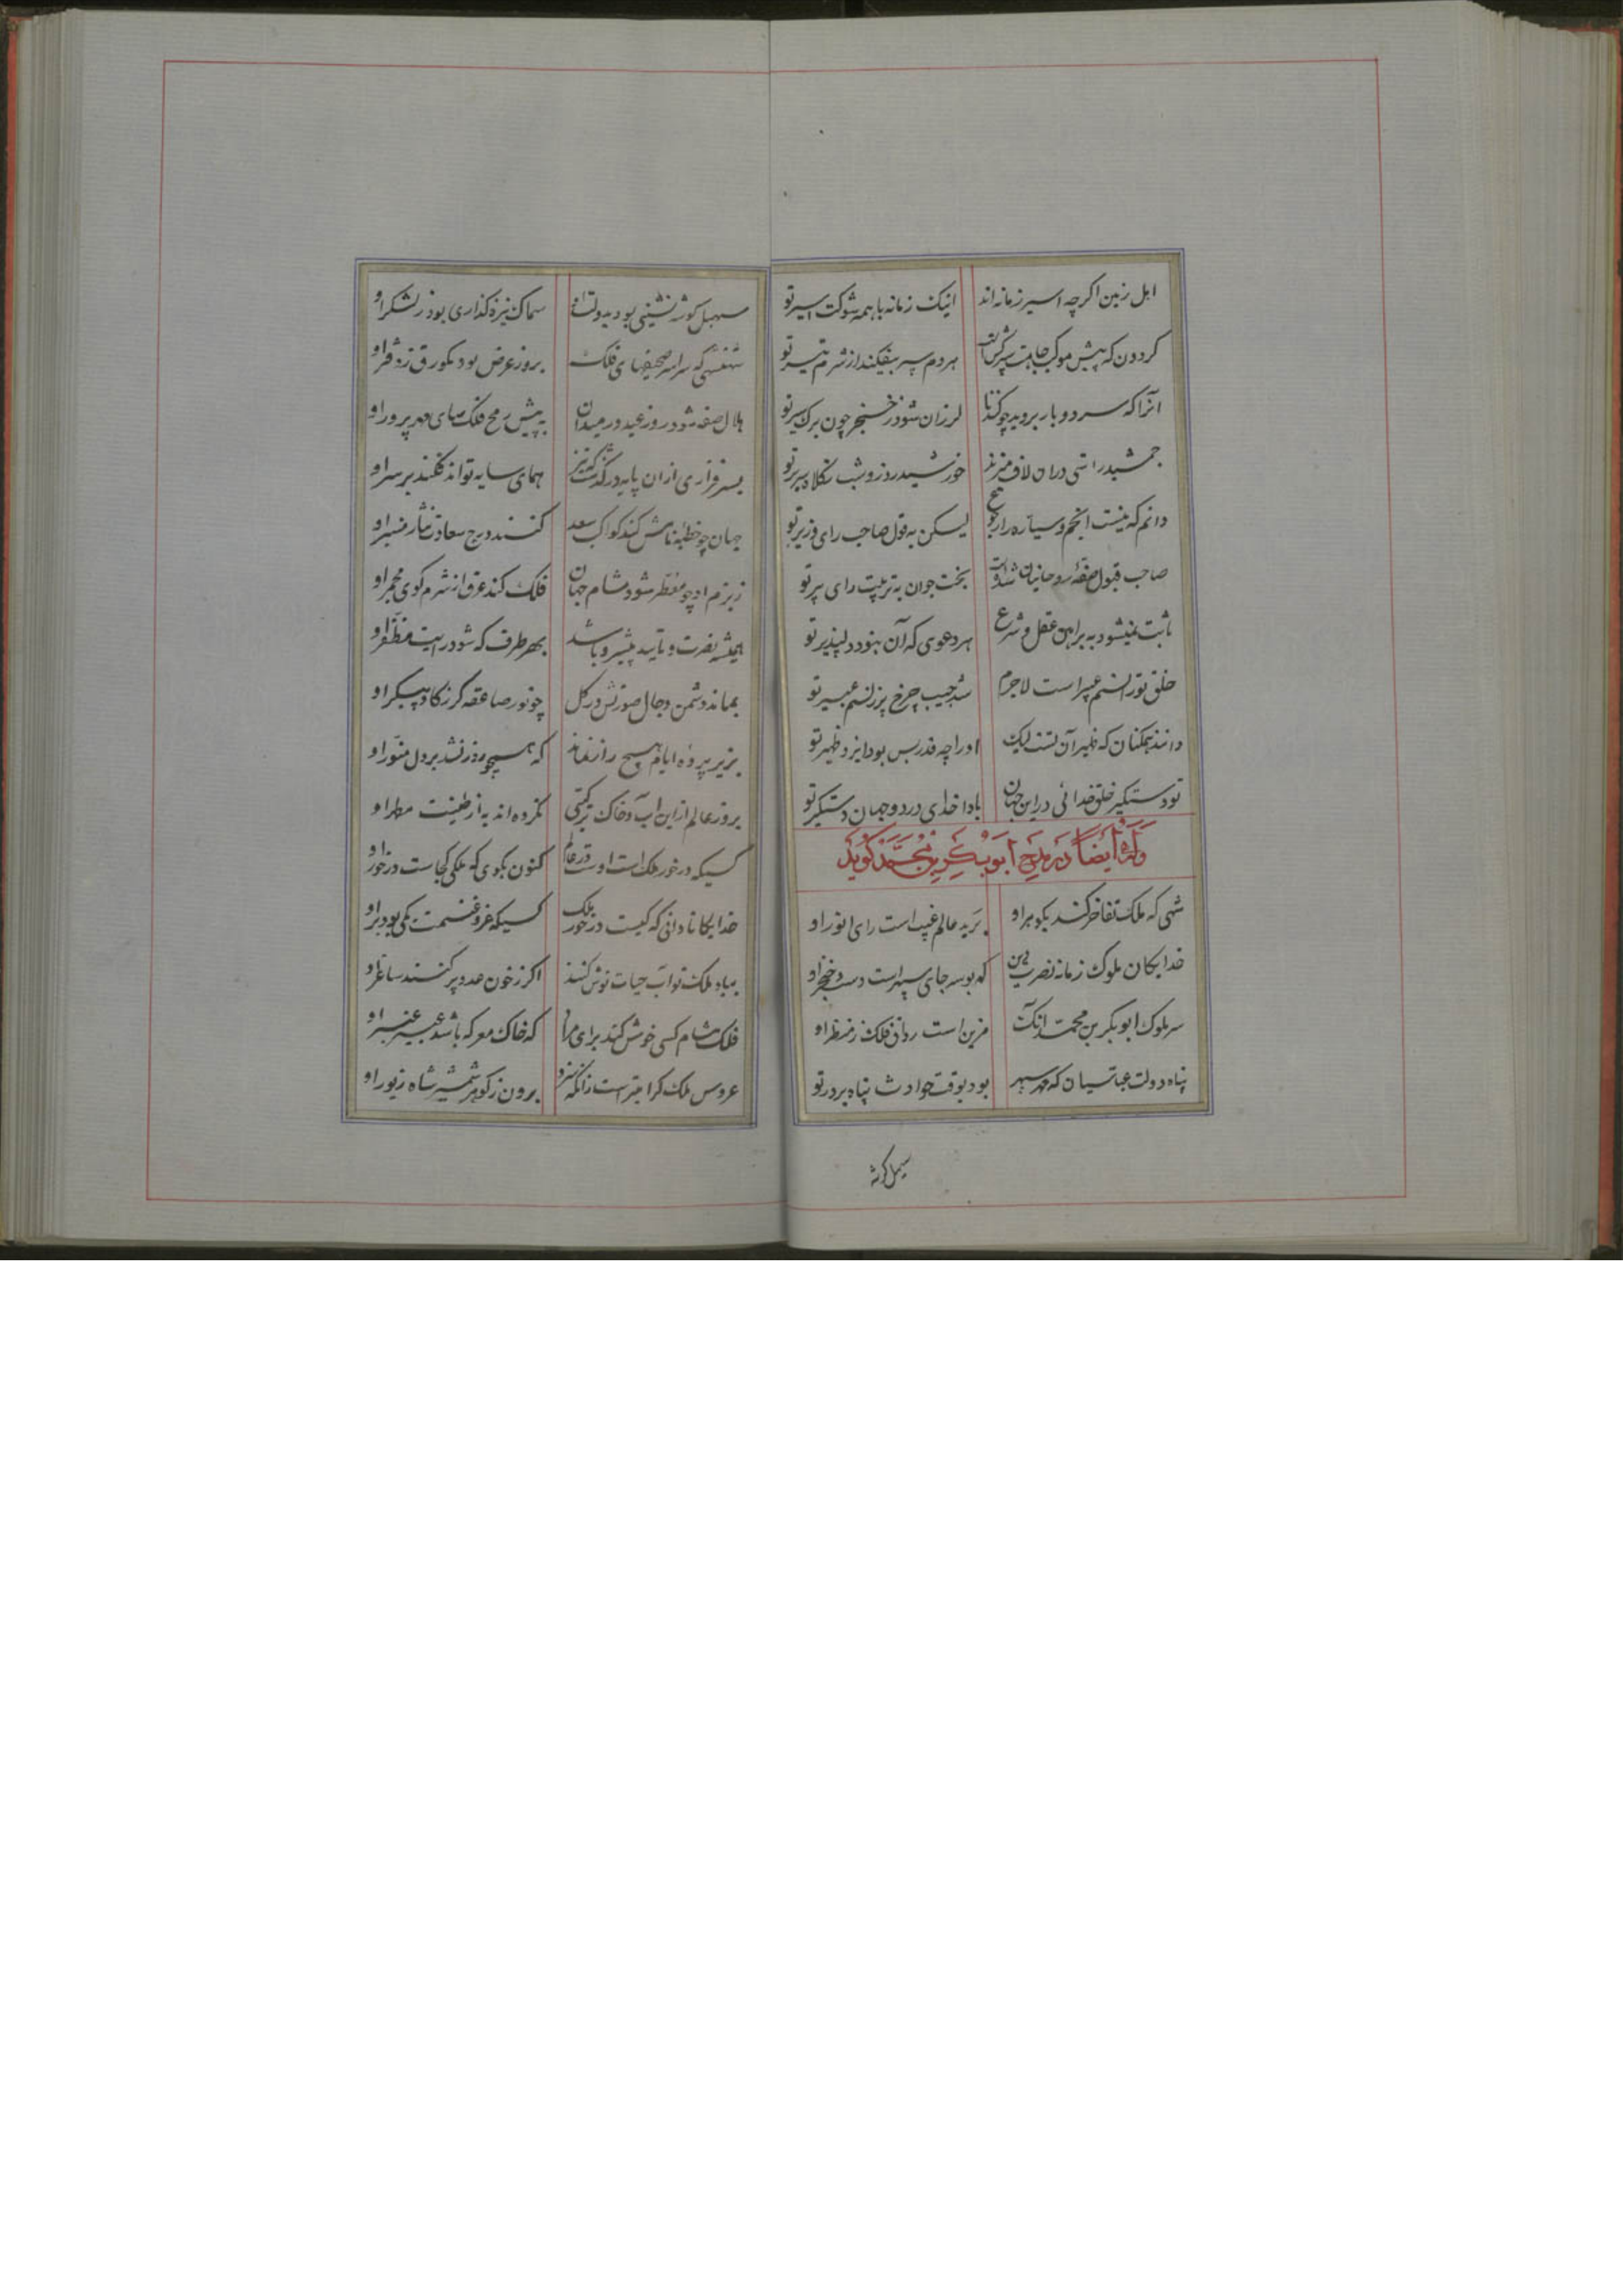 اهل زمین اگرچه اسیر زمانه‌اند اینک زمانه با همه شوکت اسیر تو
گردون که پیش موکب جاهت سپرکش است هر دم سپر بیفکند از شرم تیر تو
آنرا که سر دو بار بروید چو گندنا لرزان شود ز خنجر چون برگ سیر تو
جمشید را نمی‌ در ان لاف میزند خورشید روز و شب سریر تو
دانم که نیست انجم و سیاره را رجوع لیکن به قول صاحب رای وزیر تو
صاحب قبول صفهٔ روحانیان شد است بخت جوان به تربیت رای پیر تو
ثابت نمیشود به براهین عقل و شرع هر دعوی که آن نبود دلپذیر تو
خلق تو را نسیم عبیر است لاجرم شد جیب چرخ پر ز نسیم عبیر تو
دانند همکنان که ظهیر آن تست لیک او را چه قدر بس بود ایزد ظهیر تو
تو دستگیر خلق خدائی در این جهان بادا خدای در دو جهان دستگیر تو
وله ایضاً در مدح ابوبکر بن محمد گوید
شهی که ملک تفاخر کند بگوهر او برید عالم غیب است رای انور او
خدایگان ملوک زمانه نصرت دین که بوسه جای سپهر است دست و خنجر او
سر ملوک ابوبکر بن محمد آنک مزین است رواق فلک ز منظر او
پناه دولت عباسیان که مهر سپهر بود بوقت حوادث پناه بر در تو
سهیل گوشه
سهیل گوشه نشینی بود بدولت او سماک نیزه گذاری بود ز لشکر او
شهنشهی که سراسر صحیفهای فلک بروز عرض بود یکورق ز دفتر او
هلال صفه شود روز عید در میدان به پیش رمح فلک سای مهرپرور او
بسرفرازی از ان پایه در گذشت که نیز همای سایه تواند فکند بر سر او
جهان چو خطبه نامش کند کواکب سعد کنند درج سعادت نثار منبر او
ز بزم او چو معطر شود مشام جهان فلک کند عرق از شرم گوی مجمر او
همیشه نصرت و تایید پیشرو باشد بهر طرف که شود رایت مظفر او
بماند دشمن دجال صورتش در گل چو نور صاعقه گرز گاو پیکر او
بزیر پرده ایام هیچ راز نماند که همچو روز نشد بر دل منور او
بروز عالم از این آب و خاک ترکیبی نکرده‌اند به از طینت مطهر او
کسیکه در خور ملک است اوست در عالم کنون بگوی که ملکی کجاست در خور او
خدایگانا دانی که کیست در خور ملک کسیکه عز و غنیمت یکی بود بر او
بیاد ملک تو آب حیات نوش کنند اگر ز خون عدو پر کنند ساغر او
فلک مشام کسی خوش کند برای مراد که خاک معرکه باشد عبیر و عنبر او
عروس ملک گرامیتر است زانکه سزد برون ز گوهر شمشیر شاه زیور او